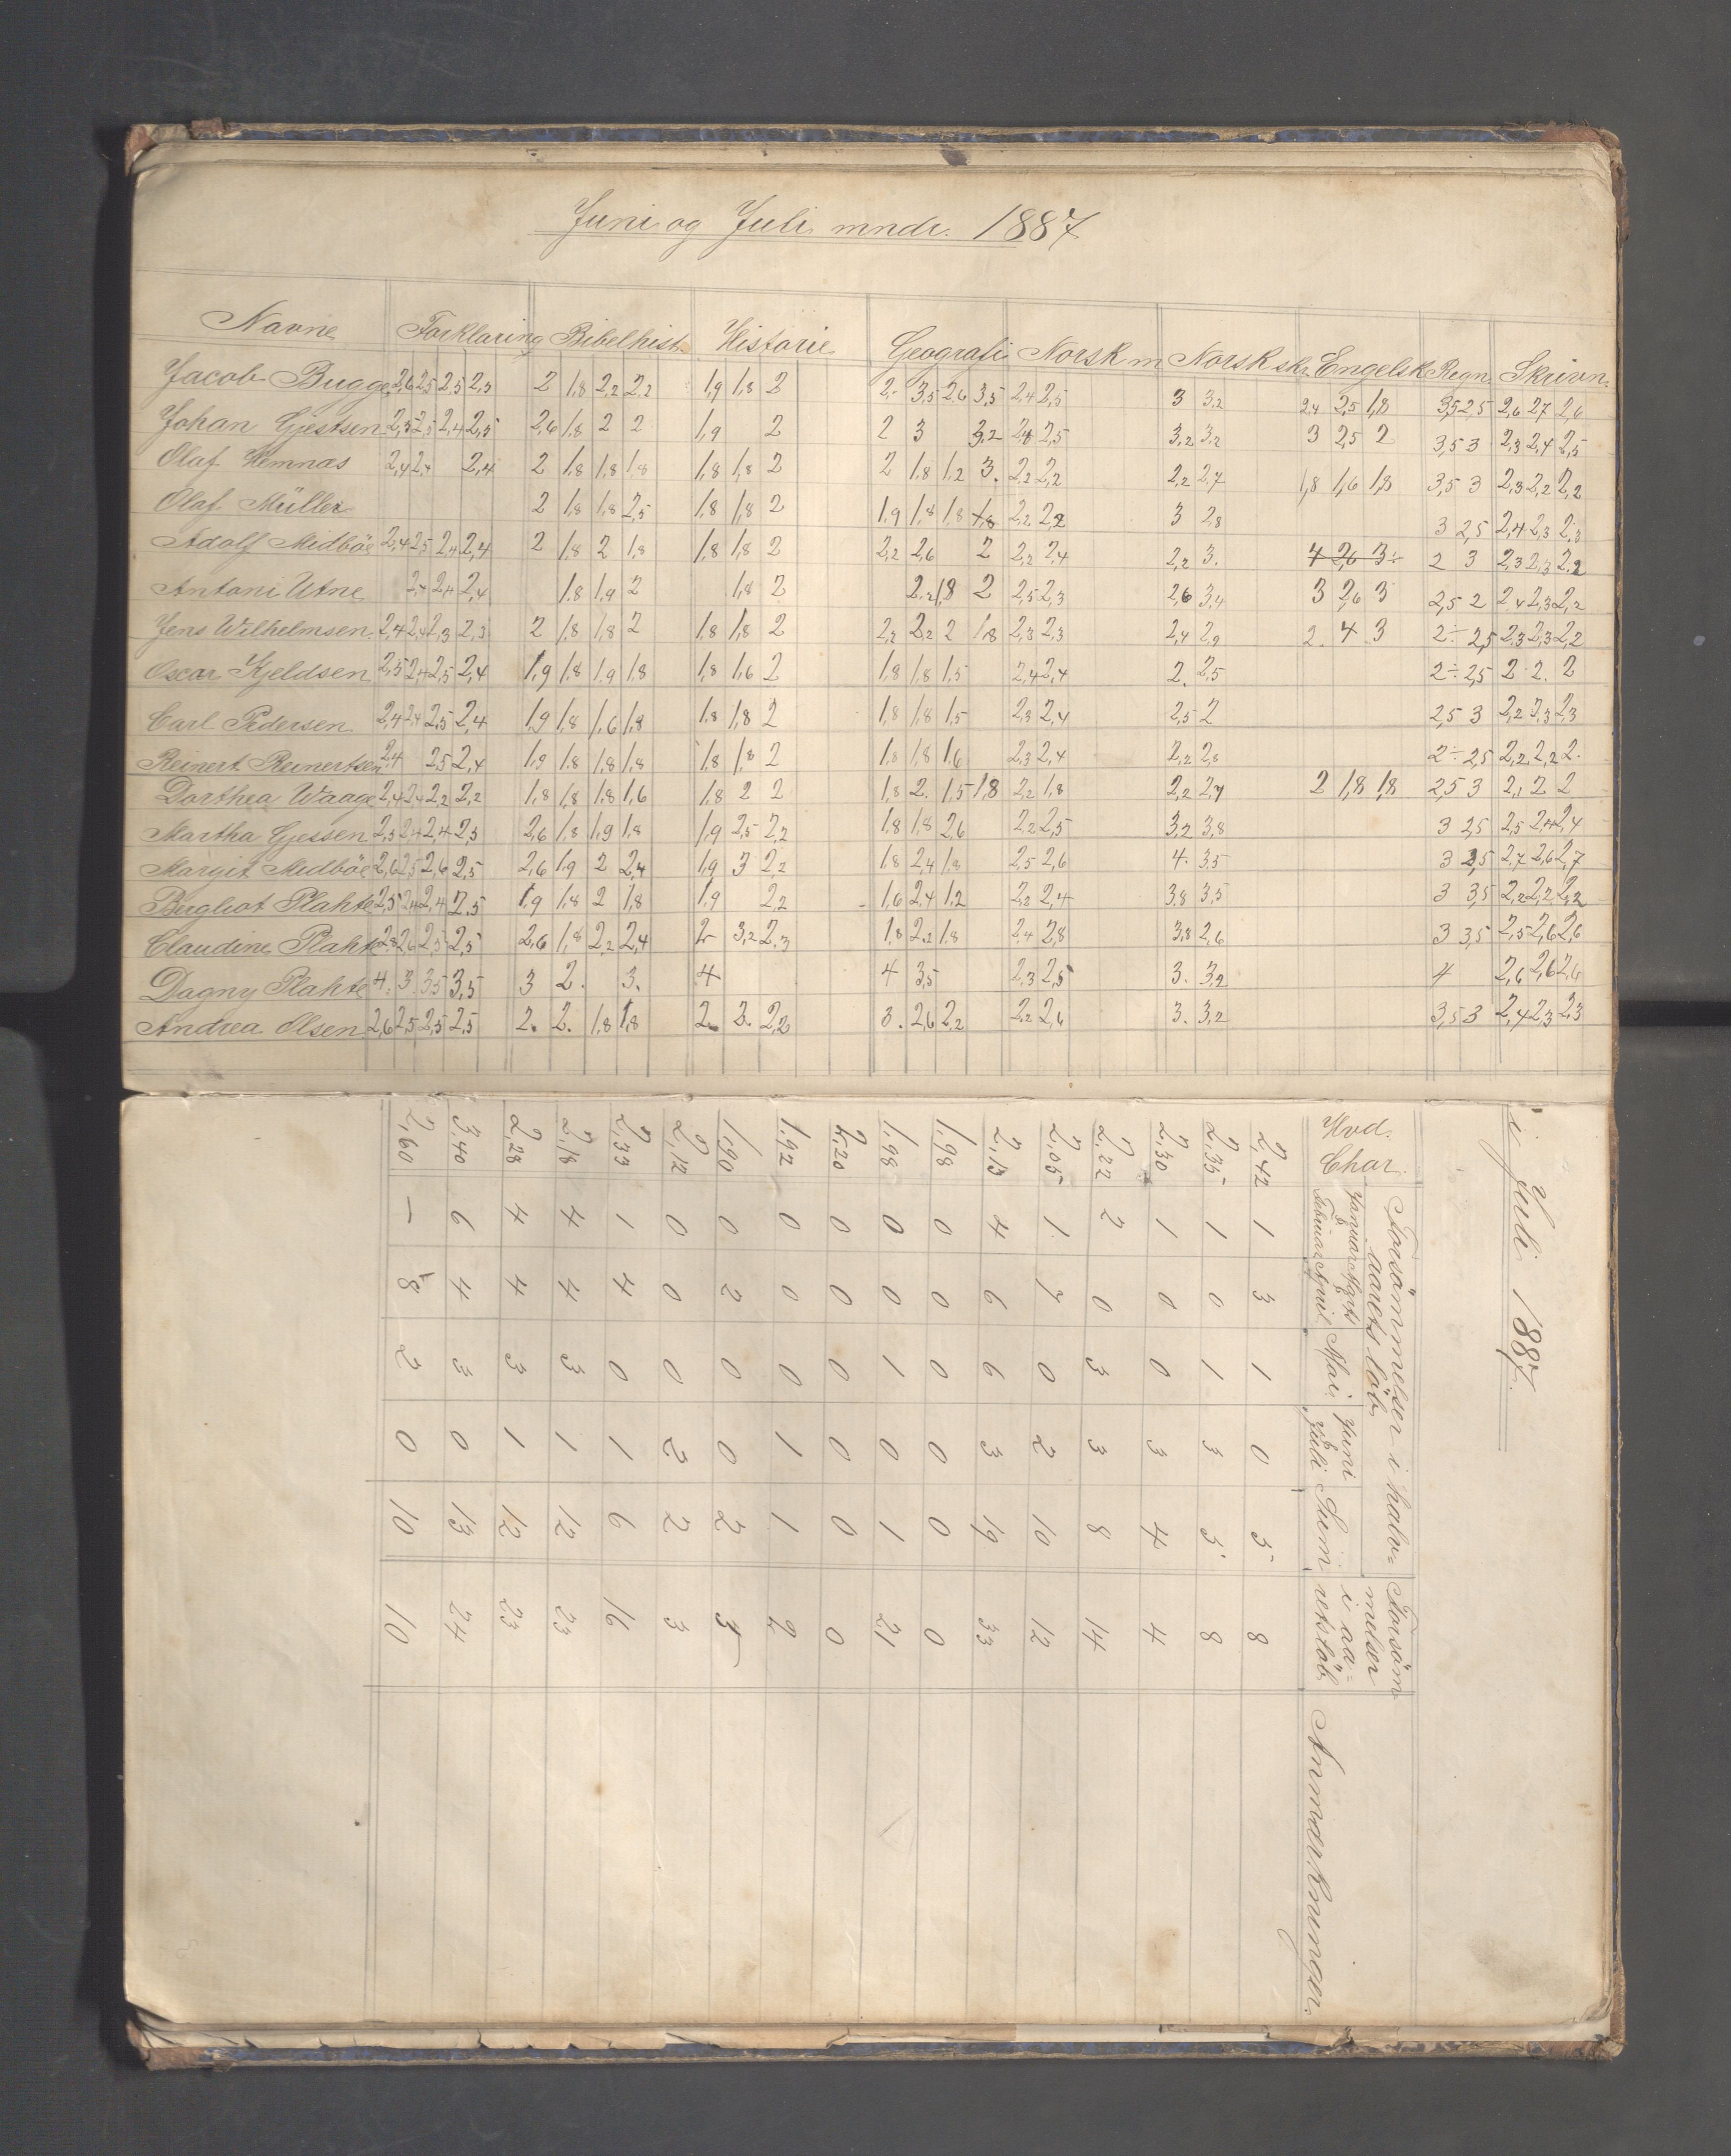 Juni og Juli mndr. 1887
Navne Forklaring Bibelhist. Historie Geografi Norsk m Norsk skr. Engelsk Regn. Skrivn.
Jacob Bugge 2,6 2,5 2,5 2,5 2 1,8 2,2 2,2 1,9 1,8 2 2- 3,5 2,6 3,5 2,4 2,5 3 3,2 2,4 2,5 1,8 3,5 2,5 2,6 2,7 2,6
Johan Gjestsen 2,5 2,5 2,4 2,5 2,6 1,8 2 2 1,9 2 2 3 3,2 2,4 2,5 3,2 3,2 3 2,5 2 3,5 3 2,3 2,4 2,5
Olaf Hemnæs 2,4 2,4 2,4 2 1,8 1,8 1,8 1,8 1,8 2 2 1,8 1,2 3. 2,2 2,2 2,2 2,7 1,8 1,6 1,8 3,5 3 2,3 2,2 2,2
Olaf Müller 2 1,8 1,8 2,5 1,8 1,8 2 1,9 1,8 1,8 1,8 2,2 2,2 3 2,8 3 2,5 2,4 2,3 2,3
Adolf Midböe 2,4 2,5 2,4 2,4 2 1,8 2 1,8 1,8 1,8 2 2,2 2,6 2 2,2 2,4 2,2 3. 4 2,6 3÷ 2 3 2,3 2,3 2,2
Antoni Utne 2,4 2,4 2,4 1,8 1,9 2 1,8 2 2,2 1,8 2 2,5 2,3 2,6 3,4 3 2,6 3 2,5 2 2,4 2,3 2,2
Jens Wilhelmsen 2,4 2,4 2,3 2,3 2 1,8 1,8 2 1,8 1,8 2 2,2 2,2 2 1,8 2,3 2,3 2,4 2,9 2. 4 3 2÷ 2,5 2,3 2,3 2,2
Oscar Kjeldsen 2,5 2,4 2,5 2,4 1,9 1,8 1,9 1,8 1,8 1,6 2 1,8 1,8 1,5 2,4 2,4 2. 2,5 2÷ 2,5 2 2. 2
Carl Pedersen 2,4 2,4 2,5 2,4 1,9 1,8 1,6 1,8 1,8 1,8 2 1,8 1,8 1,5 2,3 2,4 2,5 2 2,5 3 2,2 2,3 2,3
Reinert Reinertsen 2,4 2,5 2,4 1,9 1,8 1,8 1,8 1,8 1,8 2 1,8 1,8 1,6 2,3 2,4 2,2 2,8 2÷ 2,5 2,2 2,2 2.
Dorthea Waage 2,4 2,4 2,2 2,2 1,8 1,8 1,8 1,6 1,8 2 2 1,8 2. 1,5 1,8 2,2 1,8 2,2 2,7 2 1,8 1,8 2,5 3 2,1 2 2
Martha Gjessen 2,5 2,4 2,4 2,5 2,6 1,8 1,9 1,8 1,9 2,5 2,2 1,8 1,8 2,6 2,2 2,5 3,2 3,8 3 2,5 2,5 2,4 2,4
Margit Midböe 2,6 2,5 2,6 2,5 2,6 1,9 2 2,4 1,9 3 2,2 1,8 2,4 1,8 2,5 2,6 4. 3,5 3 2,5 2,7 2,6 2,7
Bergliot Plahte 2,5 2,4 2,4 2,5 1,9 1,8 2 1,8 1,9 2,2 1,6 2,4 1,2 2,2 2,4 3,8 3,5 3 3,5 2,2 2,2 2,2
Claudine Plahte 2,8 2,6 2,5 2,5 2,6 1,8 2,2 2,4 2- 3,2 2,3 1,8 2,2 1,8 2,4 2,8 3,8 2,6 3 3,5 2,5 2,6 2,6
Dagny Plahte 4. 3. 3,5 3,5 3 2. 3. 4 4 3,5 2,3 2,5 3. 3,2 4 2,6 2,6 2,6
Andrea Olsen 2,6 2,5 2,5 2,5 2. 2. 1,8 1,8 2. 3. 2,2 3. 2,6 2,2 2,2 2,6 3. 3,2 3,5 3 2,4 2,3 2,3
i Juli 1887.
Hvd. Char. Forsömmelser i halv= Forsöm
aarets löb melser
Januar & Februar Marts & April Mai Juni & Juli Sum i aa=
rets löb Anmærkninger.
2,42 1 3 1 0 5 8
2,35 1 0 1 3 5 8
2,30 1 0 0 3 4 4
2,22 2 0 3 3 8 14
2,05 1 7 0 2 10 12
2,13 4 6 6 3 19 33
1,98 0 0 0 0 0 0
1,98 0 0 1 0 1 21
2,20 0 0 0 0 0 0
1,92 0 0 0 1 1 2
1,90 0 2 0 0 2 3
2,12 0 0 0 2 2 3
2,33 1 4 0 1 6 16
2,18 4 4 3 1 12 23
2,28 4 4 3 1 12 23
3,40 6 4 3 0 13 24
2,60 - 8 2 0 10 10